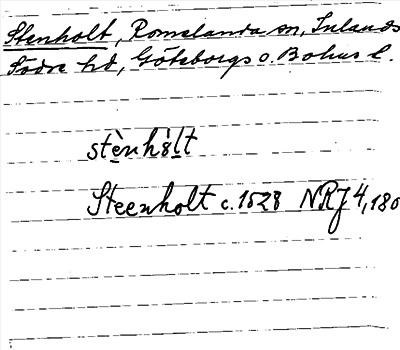 Stenholt, Romelanda sn, Inlands
Södre hd, Göteborgs o. Bohus l.
stènhò̲lt
Steenholt c. 1528 NRJ 4, 180